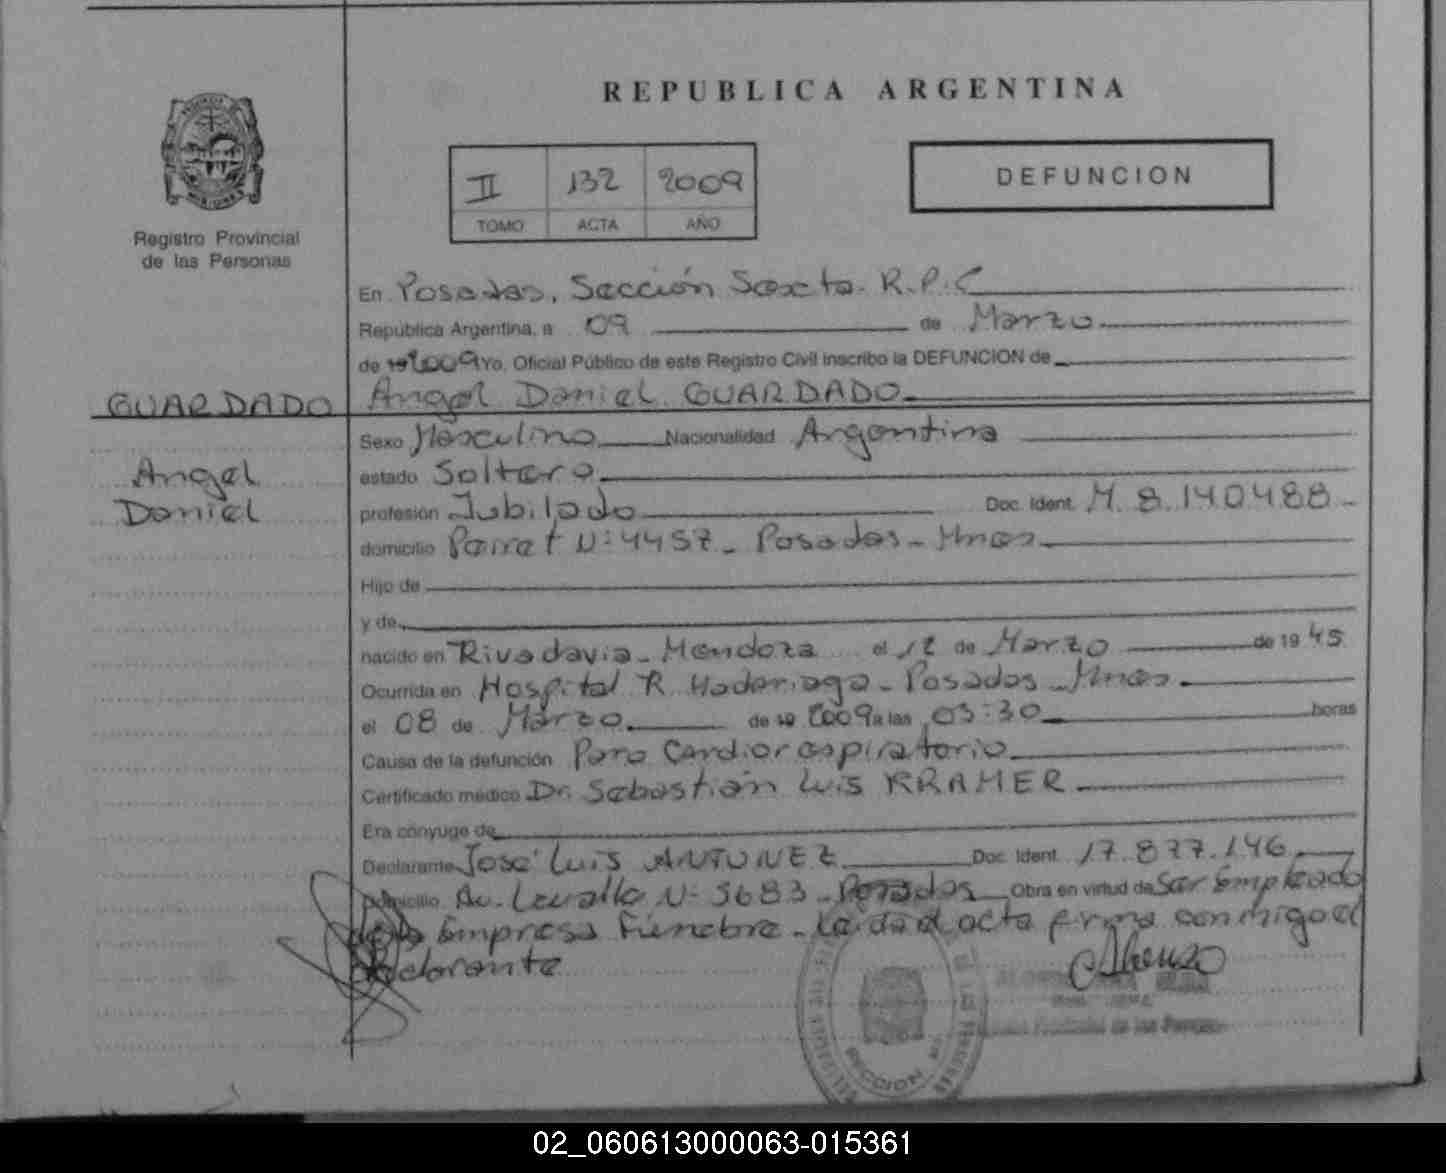 REPUBLICA ARGENTINA
II 132 2009
TOMO ACTA AÑO
DEFUNCION
Registro Provincial
de las Personas
En Posadas, Sección Sexta R.P.C
República Argentina, a 09 de Marzo
de 19 2009 Yo, Oficial Público de este Registro Civil inscribo la DEFUNCION de
GUARDADO
Angel Daniel GUARDADO
Angel
Daniel
Sexo Masculino Nacionalidad Argentina
estado Soltero
profesión Jubilado Doc. Ident. M. 8.140.488
domicilio Perret N: 4457 - Posadas - Mnes
Hijo de
y de
nacido en Rivadavia - Mendoza el 12 de Marzo de 19 45
Ocurrida en Hospital R. Madariaga - Posadas - Mnes
el 08 de Marzo de 19 2009 a las 03:30 horas
Causa de la defunción Paro Cardiorespiratorio
Certificado médico Dr. Sebastián Luis KRAMER
Era cónyuge de
Declarante José Luis ANTUNEZ Doc. Ident. 17.877.146
Domicilio Av. Lavalle N: 5683 - Posadas Obra en virtud de Ser Empleado
de la Empresa Fúnebre - Leida el acta firma conmigo el
declarante
SECCION
02_060613000063-015361